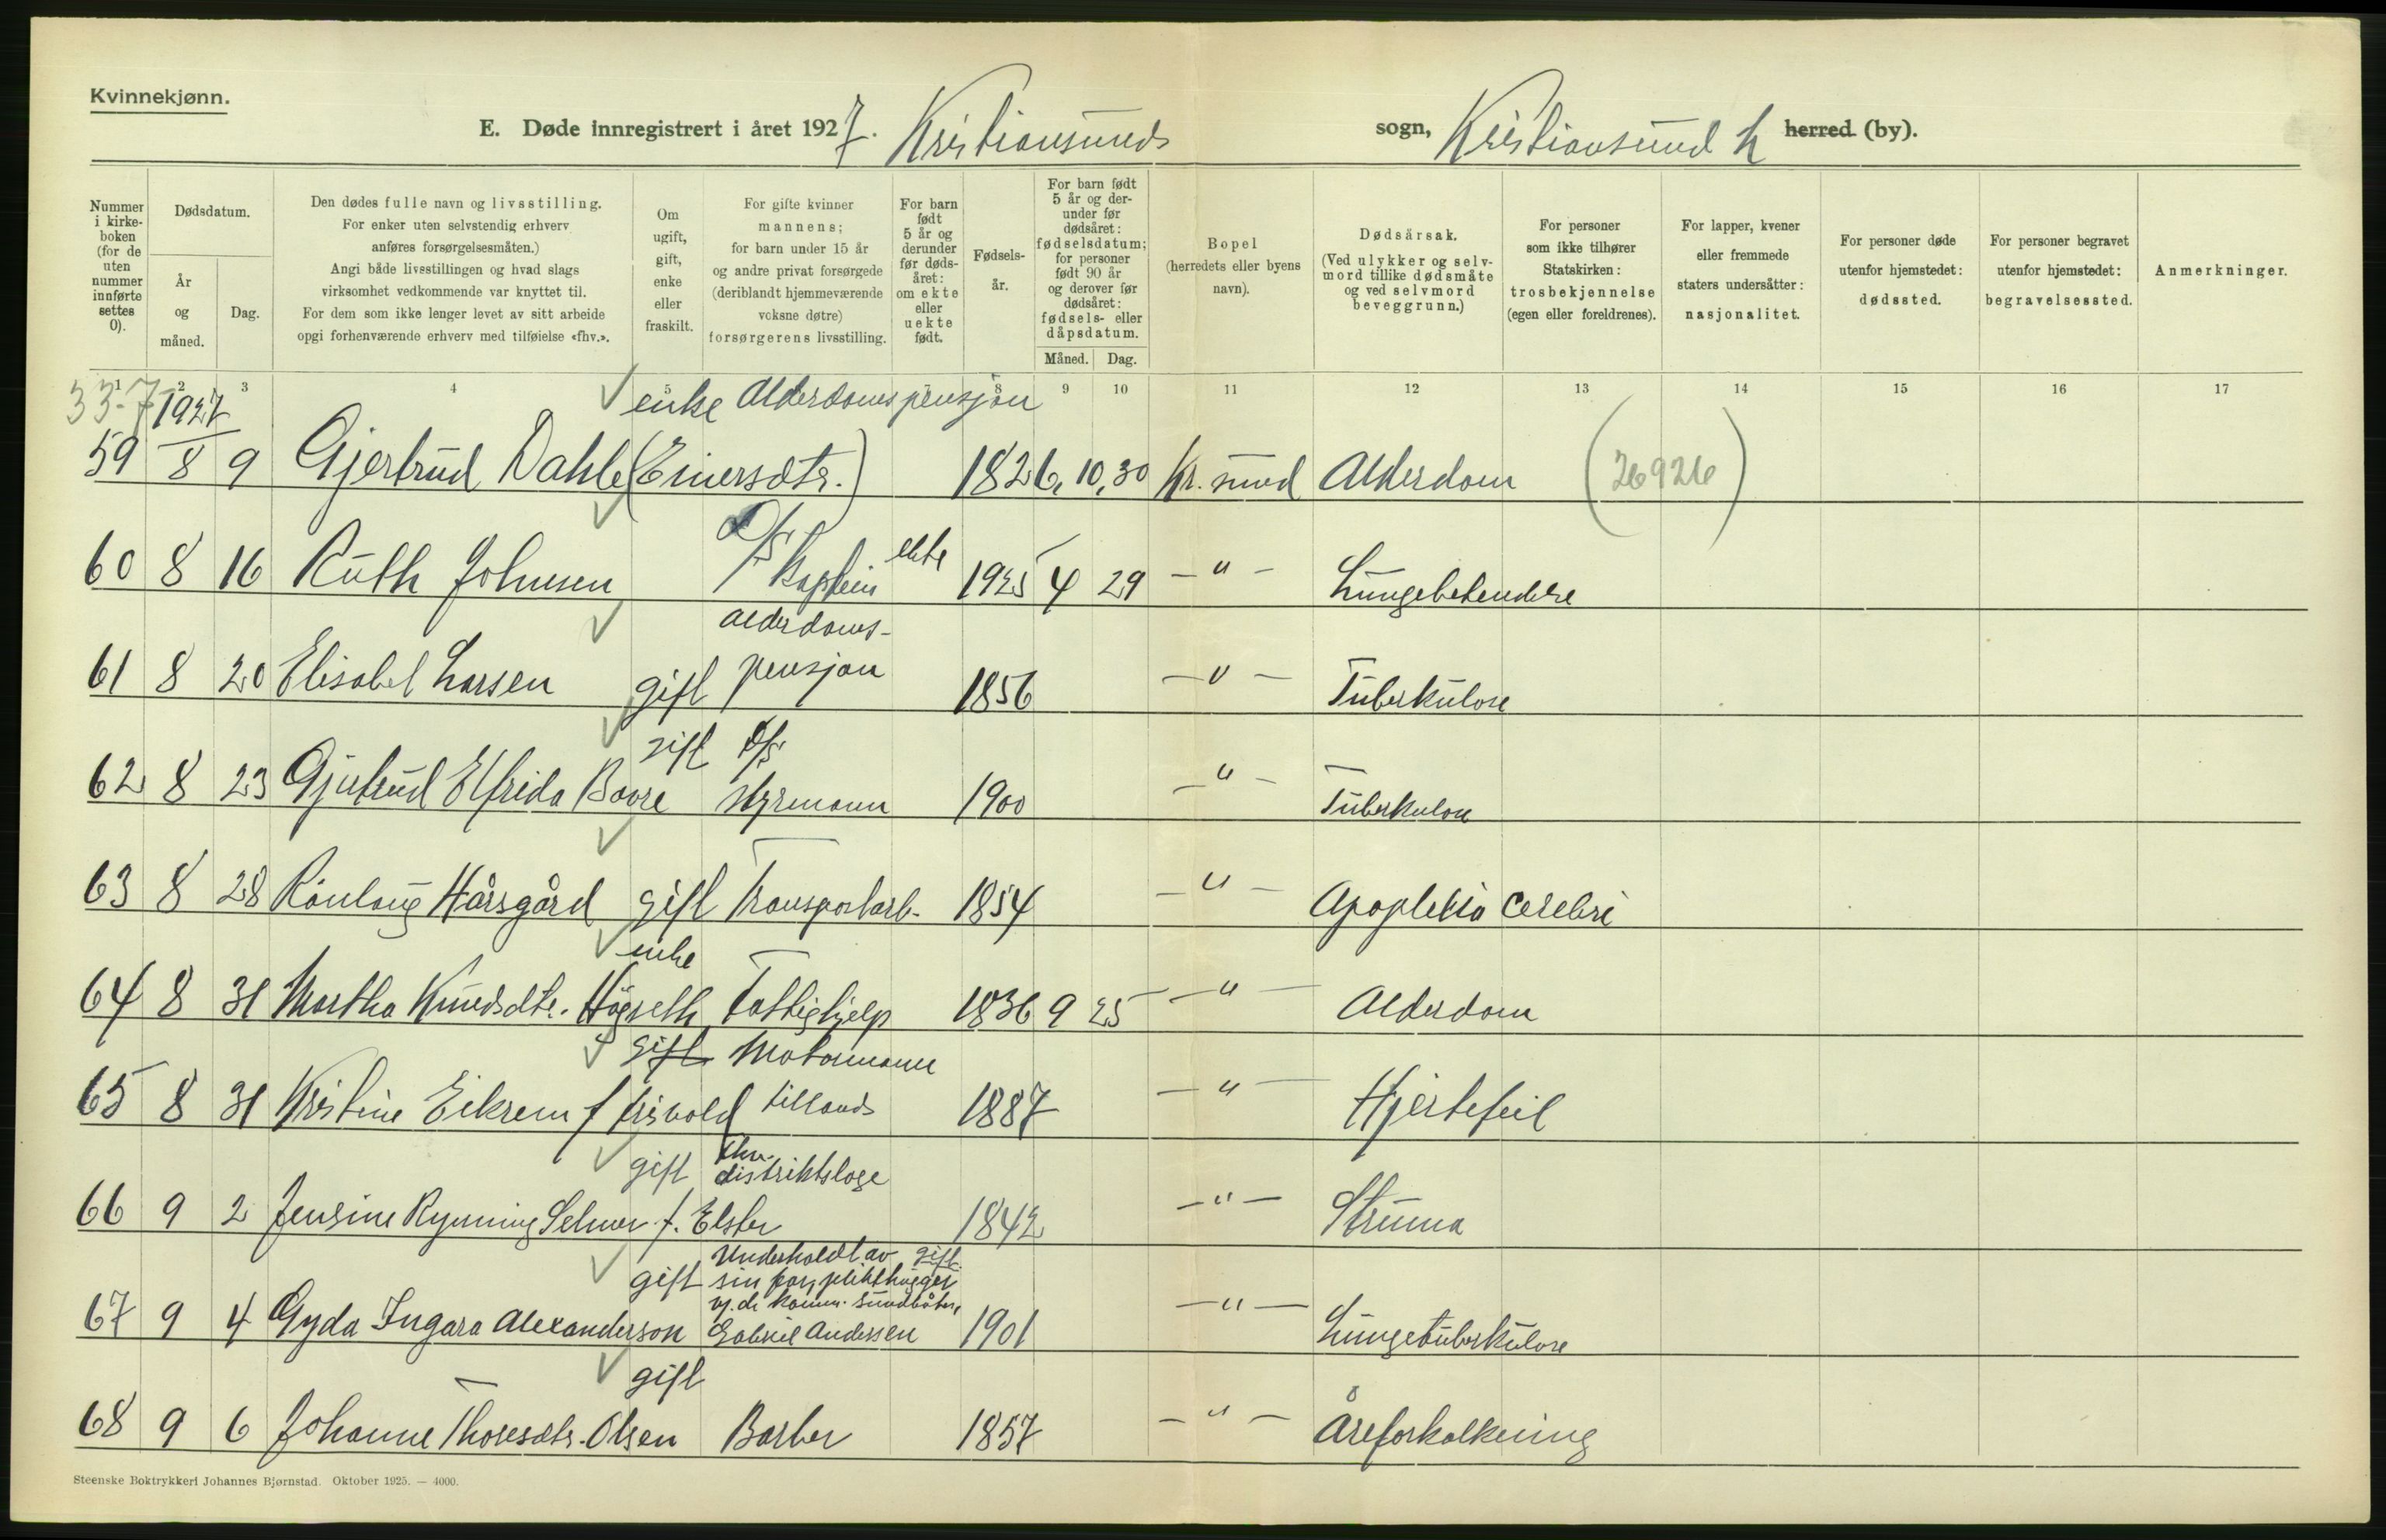 Kvinnekjønn.
E. Døde innregistrert i året 1927. Kristiansunds sogn, Kristiansund N herred (by).
Nummer i kirke-boken (for de uten nummer innførte settes 0).
Dødsdatum.
År og måned.
Dag.
Den dødes fulle navn og livsstilling.
For enker uten selvstendig erhverv anføres forsørgelsesmåten.)
Angi både livsstillingen og hvad slags virksomhet vedkommende var knyttet til.
For dem som ikke lenger levet av sitt arbeide opgi forhenværende erhverv med tilføielse «fhv.».
Om ugift, gift, enke eller fraskilt.
For gifte kvinner mannens; for barn under 15 år og andre privat forsørgede (deriblandt hjemmeværende voksne døtre) forsørgerens livsstilling.
For barn født 5 år og derunder før døds-året: om ekte eller uekte født.
Fødsels-år.
For barn født 5 år og der-under før dødsåret: fødselsdatum; for personer født 90 år og derover før dødsåret: fødsels- eller dåpsdatum.
Måned. Dag.
Bopel (herredets eller byens navn).
Dødsårsak. (Ved ulykker og selv-mord tillike dødsmåte og ved selvmord beveggrunn.)
For personer som ikke tilhører Statskirken: trosbekjennelse (egen eller foreldrenes).
For lapper, kvener eller fremmede staters undersåtter: nasjonalitet.
For personer døde utenfor hjemstedet: dødssted.
For personer begravet utenfor hjemstedet: begravelsessted.
Anmerkninger.
1 2 3 4 5 7 8 9 10 11 12 13 14 15 16 17
33-7 1927 enke Alderdomspensjon
59 8 9 Gjertrud Dahle (Einersdtr.) 1826, 10, 30 Kr. sund Alderdom (26926)
60 8 16 Ruth Johnsen D/S Kaptein ekte 1925 4 29 - " - Lungebetendelse
61 8 20 Elisabet Larsen gift Alderdoms-
pensjon 1856 - " - Tuberkulose
62 8 23 Gjertrud Elfrida Boore gift D/S
styrmann 1900 - " - Tuberkulose
63 8 28 Rönlaug Hårsgård gift Transportarb. 1854 - " - Apoplekia cerebri
64 8 31 Martha Knudsdtr. Högseth enke Fattighjelp 1836 9 25 - " - Alderdom
65 8 31 Kristine Eikrem f Frisvold gift Motormann
tillands 1887 - " - Hjertefeil
gift fhv.
distriktslæge
66 9 2 Jensine Rynning Selmer f. Elster 1842 - " - Struma
gift Underholdt av gift
sin
vj. de komm. sundbåter,
67 9 4 Gyda Ingara Alexanderson Gabriel Andersen 1901 - " - Lungetuberkulose
gift
68 9 6 Johanne Thoresdtr. Olsen Barber 1857 - " - Åreforkalkning
Steenske Boktrykkeri Johannes Bjørnstad. Oktober 1925. — 4000.